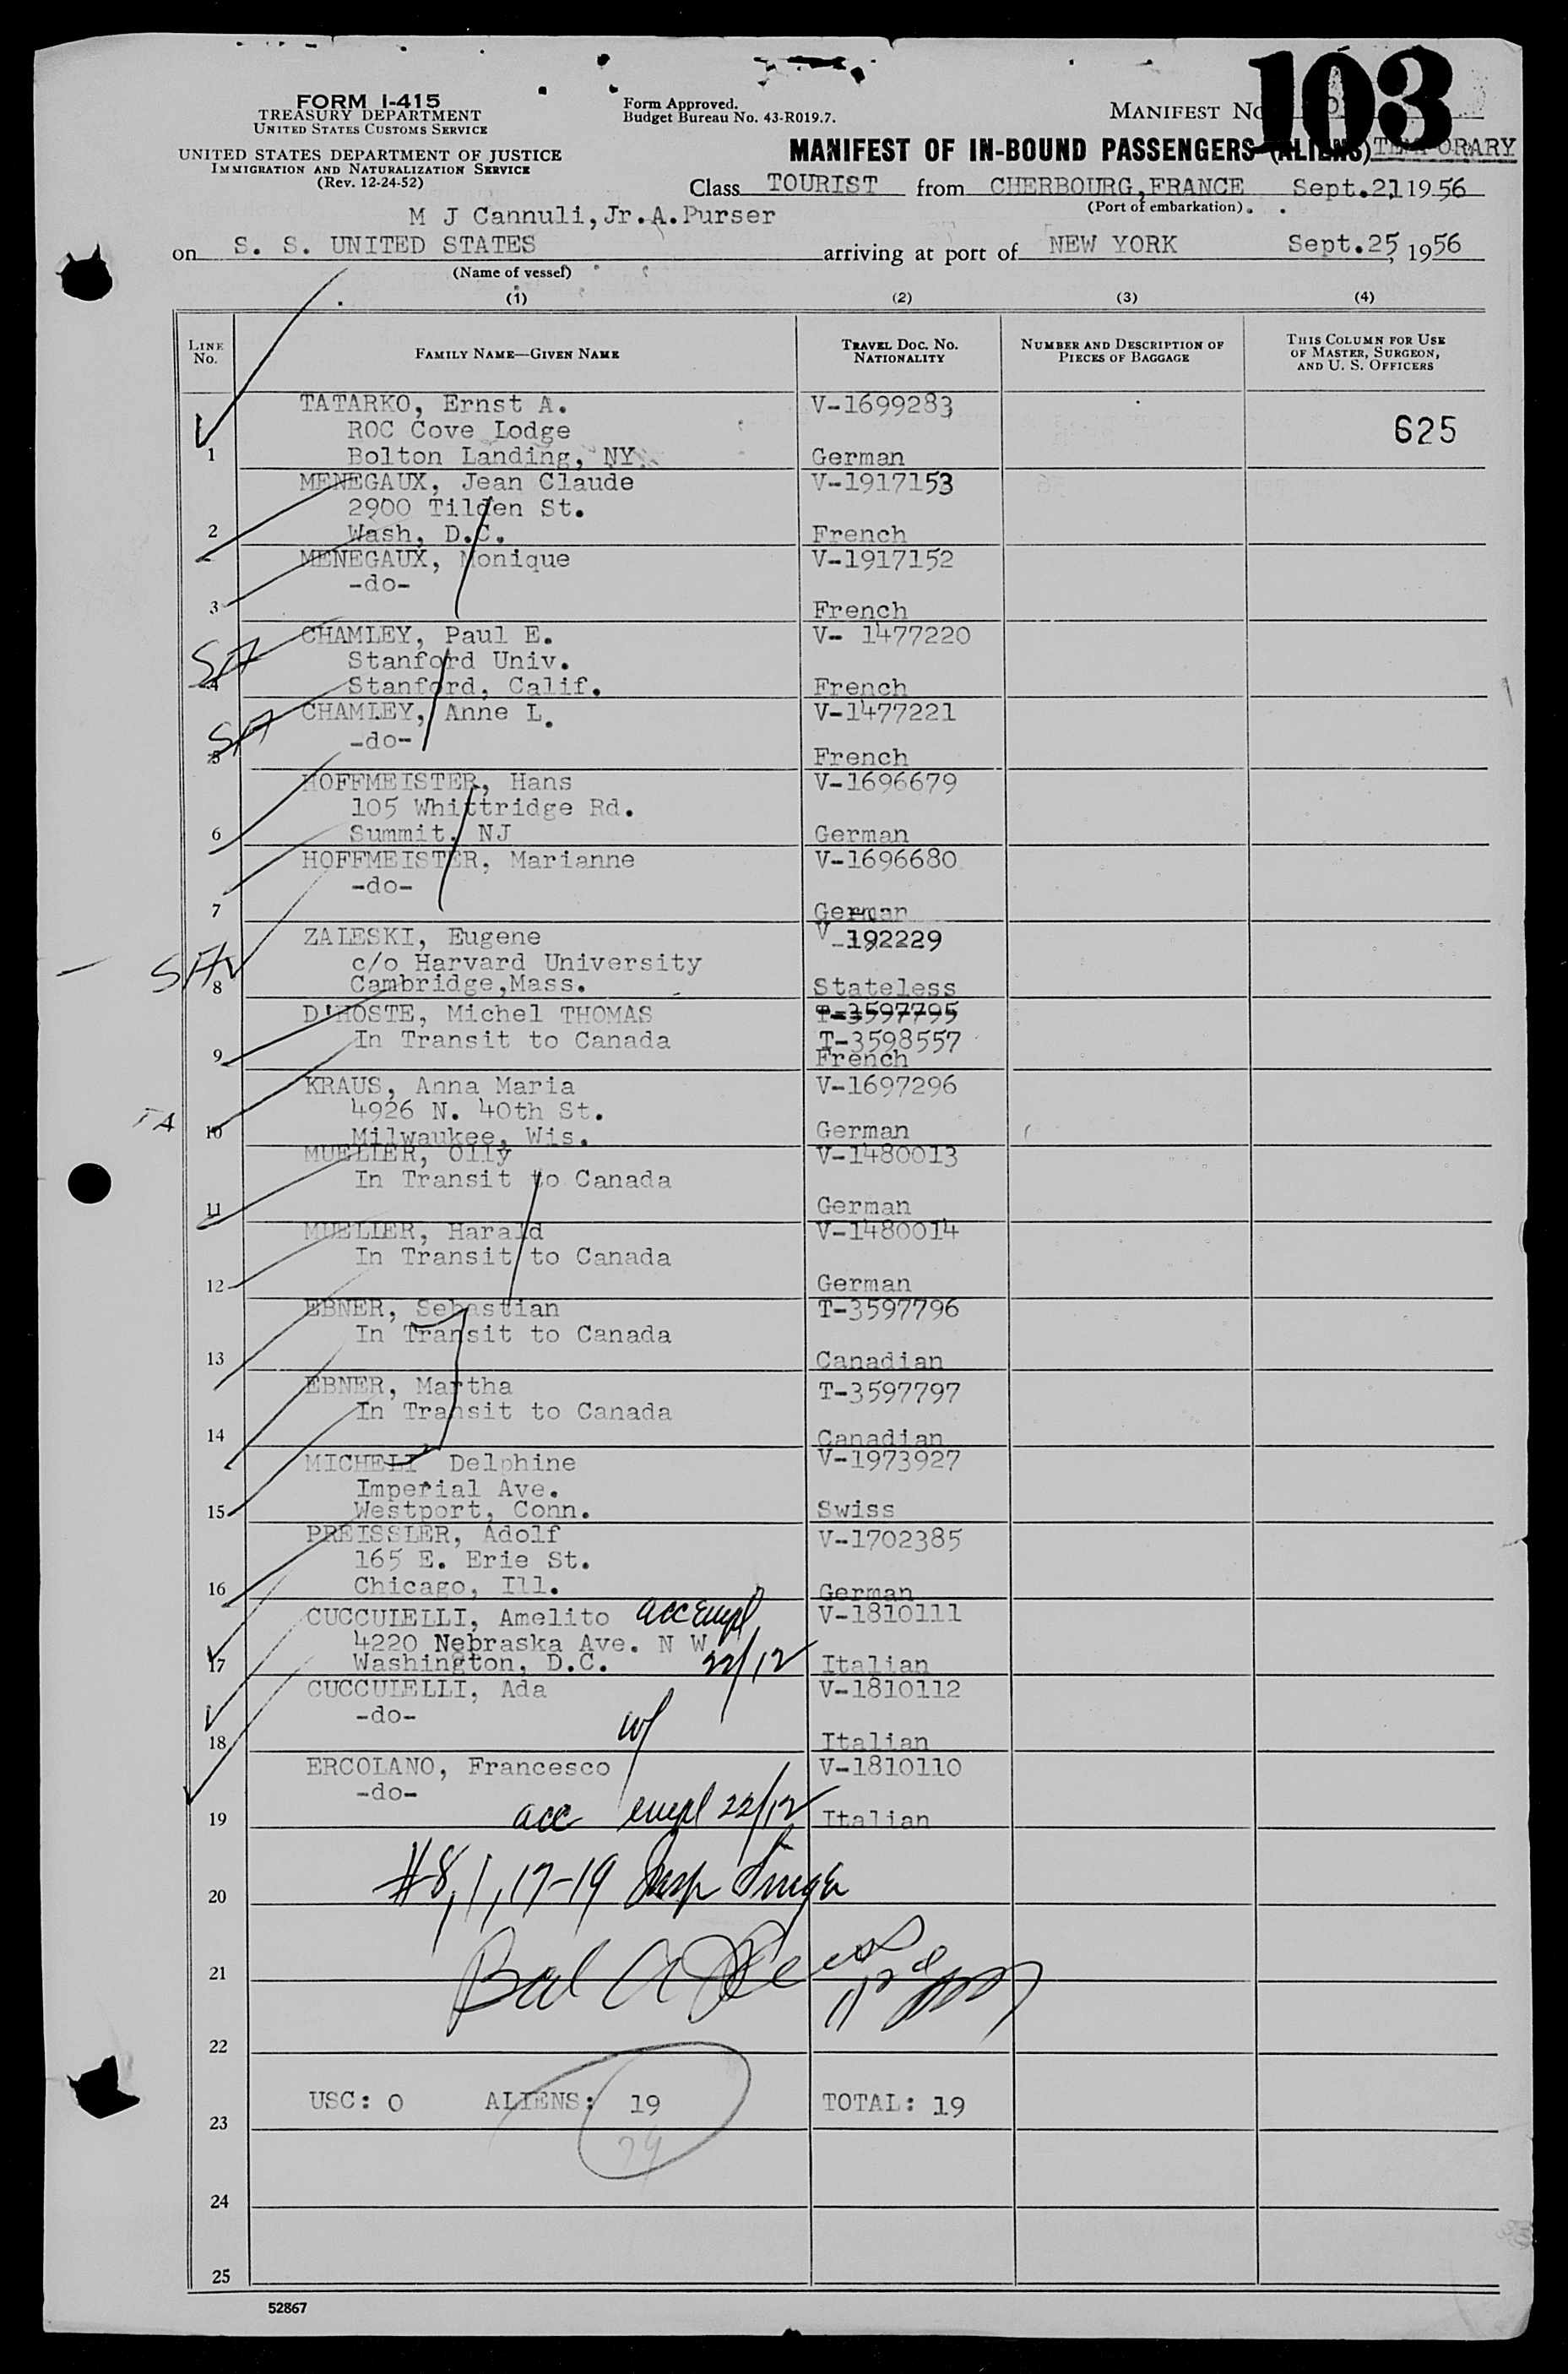 103
FORM I-415
TREASURY DEPARTMENT
UNITED STATES CUSTOMS SERVICE
UNITED STATES DEPARTMENT OF JUSTICE
IMMIGRATION AND NATURALIZATION SERVICE
(Rev. 12-24-52)
Form Approved.
Budget Bureau No. 43-R019.7.
MANIFEST No.
MANIFEST OF IN-BOUND PASSENGERS (ALIENS) TEMPORARY
Class TOURIST from CHERBOURG,FRANCE Sept.21, 1956
(Port of embarkation)
M J Cannuli,Jr.A.Purser
on S. S. UNITED STATES arriving at port of NEW YORK Sept.25, 1956
(Name of vessel)
(1) (2) (3) (4)
LINE No. FAMILY NAME—GIVEN NAME TRAVEL DOC. NO. NATIONALITY NUMBER AND DESCRIPTION OF PIECES OF BAGGAGE THIS COLUMN FOR USE OF MASTER, SURGEON, AND U. S. OFFICERS
TATARKO, Ernst A. V-1699283
ROC Cove Lodge 625
1 Bolton Landing, NY German
MENEGAUX, Jean Claude V-1917153
2900 Tilden St.
2 Wash, D.C. French
MENEGAUX, Monique V-1917152
-do-
3 French
CHAMLEY, Paul E. V- 1477220
SA Stanford Univ.
4 Stanford, Calif. French
CHAMLEY, Anne L. V-1477221
SA -do-
5 French
HOFFMEISTER, Hans V-1696679
105 Whittridge Rd.
6 Summit, NJ German
HOFFMEISTER, Marianne V-1696680
-do-
7 German
ZALESKI, Eugene V-192229
SA c/o Harvard University
8 Cambridge,Mass. Stateless
D'HOSTE, Michel THOMAS T-3597795
In Transit to Canada T-3598557
9 French
KRAUS, Anna Maria V-1697296
4926 N. 40th St.
10 Milwaukee, Wis. German
MUELLER, Olly V-1480013
In Transit to Canada
11 German
MUELLER, Harald V-1480014
In Transit to Canada
12 German
EBNER, Sebastian T-3597796
In Transit to Canada
13 Canadian
EBNER, Martha T-3597797
In Transit to Canada
14 Canadian
MICHELI Delphine V-1973927
Imperial Ave.
15 Westport, Conn. Swiss
PREISSLER, Adolf V-1702385
165 E. Erie St.
16 Chicago, Ill. German
CUCCUIELLI, Amelito acc empl V-1810111
4220 Nebraska Ave. N W
17 Washington, D.C. 22/12 Italian
CUCCUIELLI, Ada V-1810112
-do- w/
18 Italian
ERCOLANO, Francesco V-1810110
-do-
19 acc empl 22/12 Italian
20 #8, 1, 17-19 Insp
21 Bal
22
USC: 0 ALIENS: 19 TOTAL: 19
23
24
25
52867